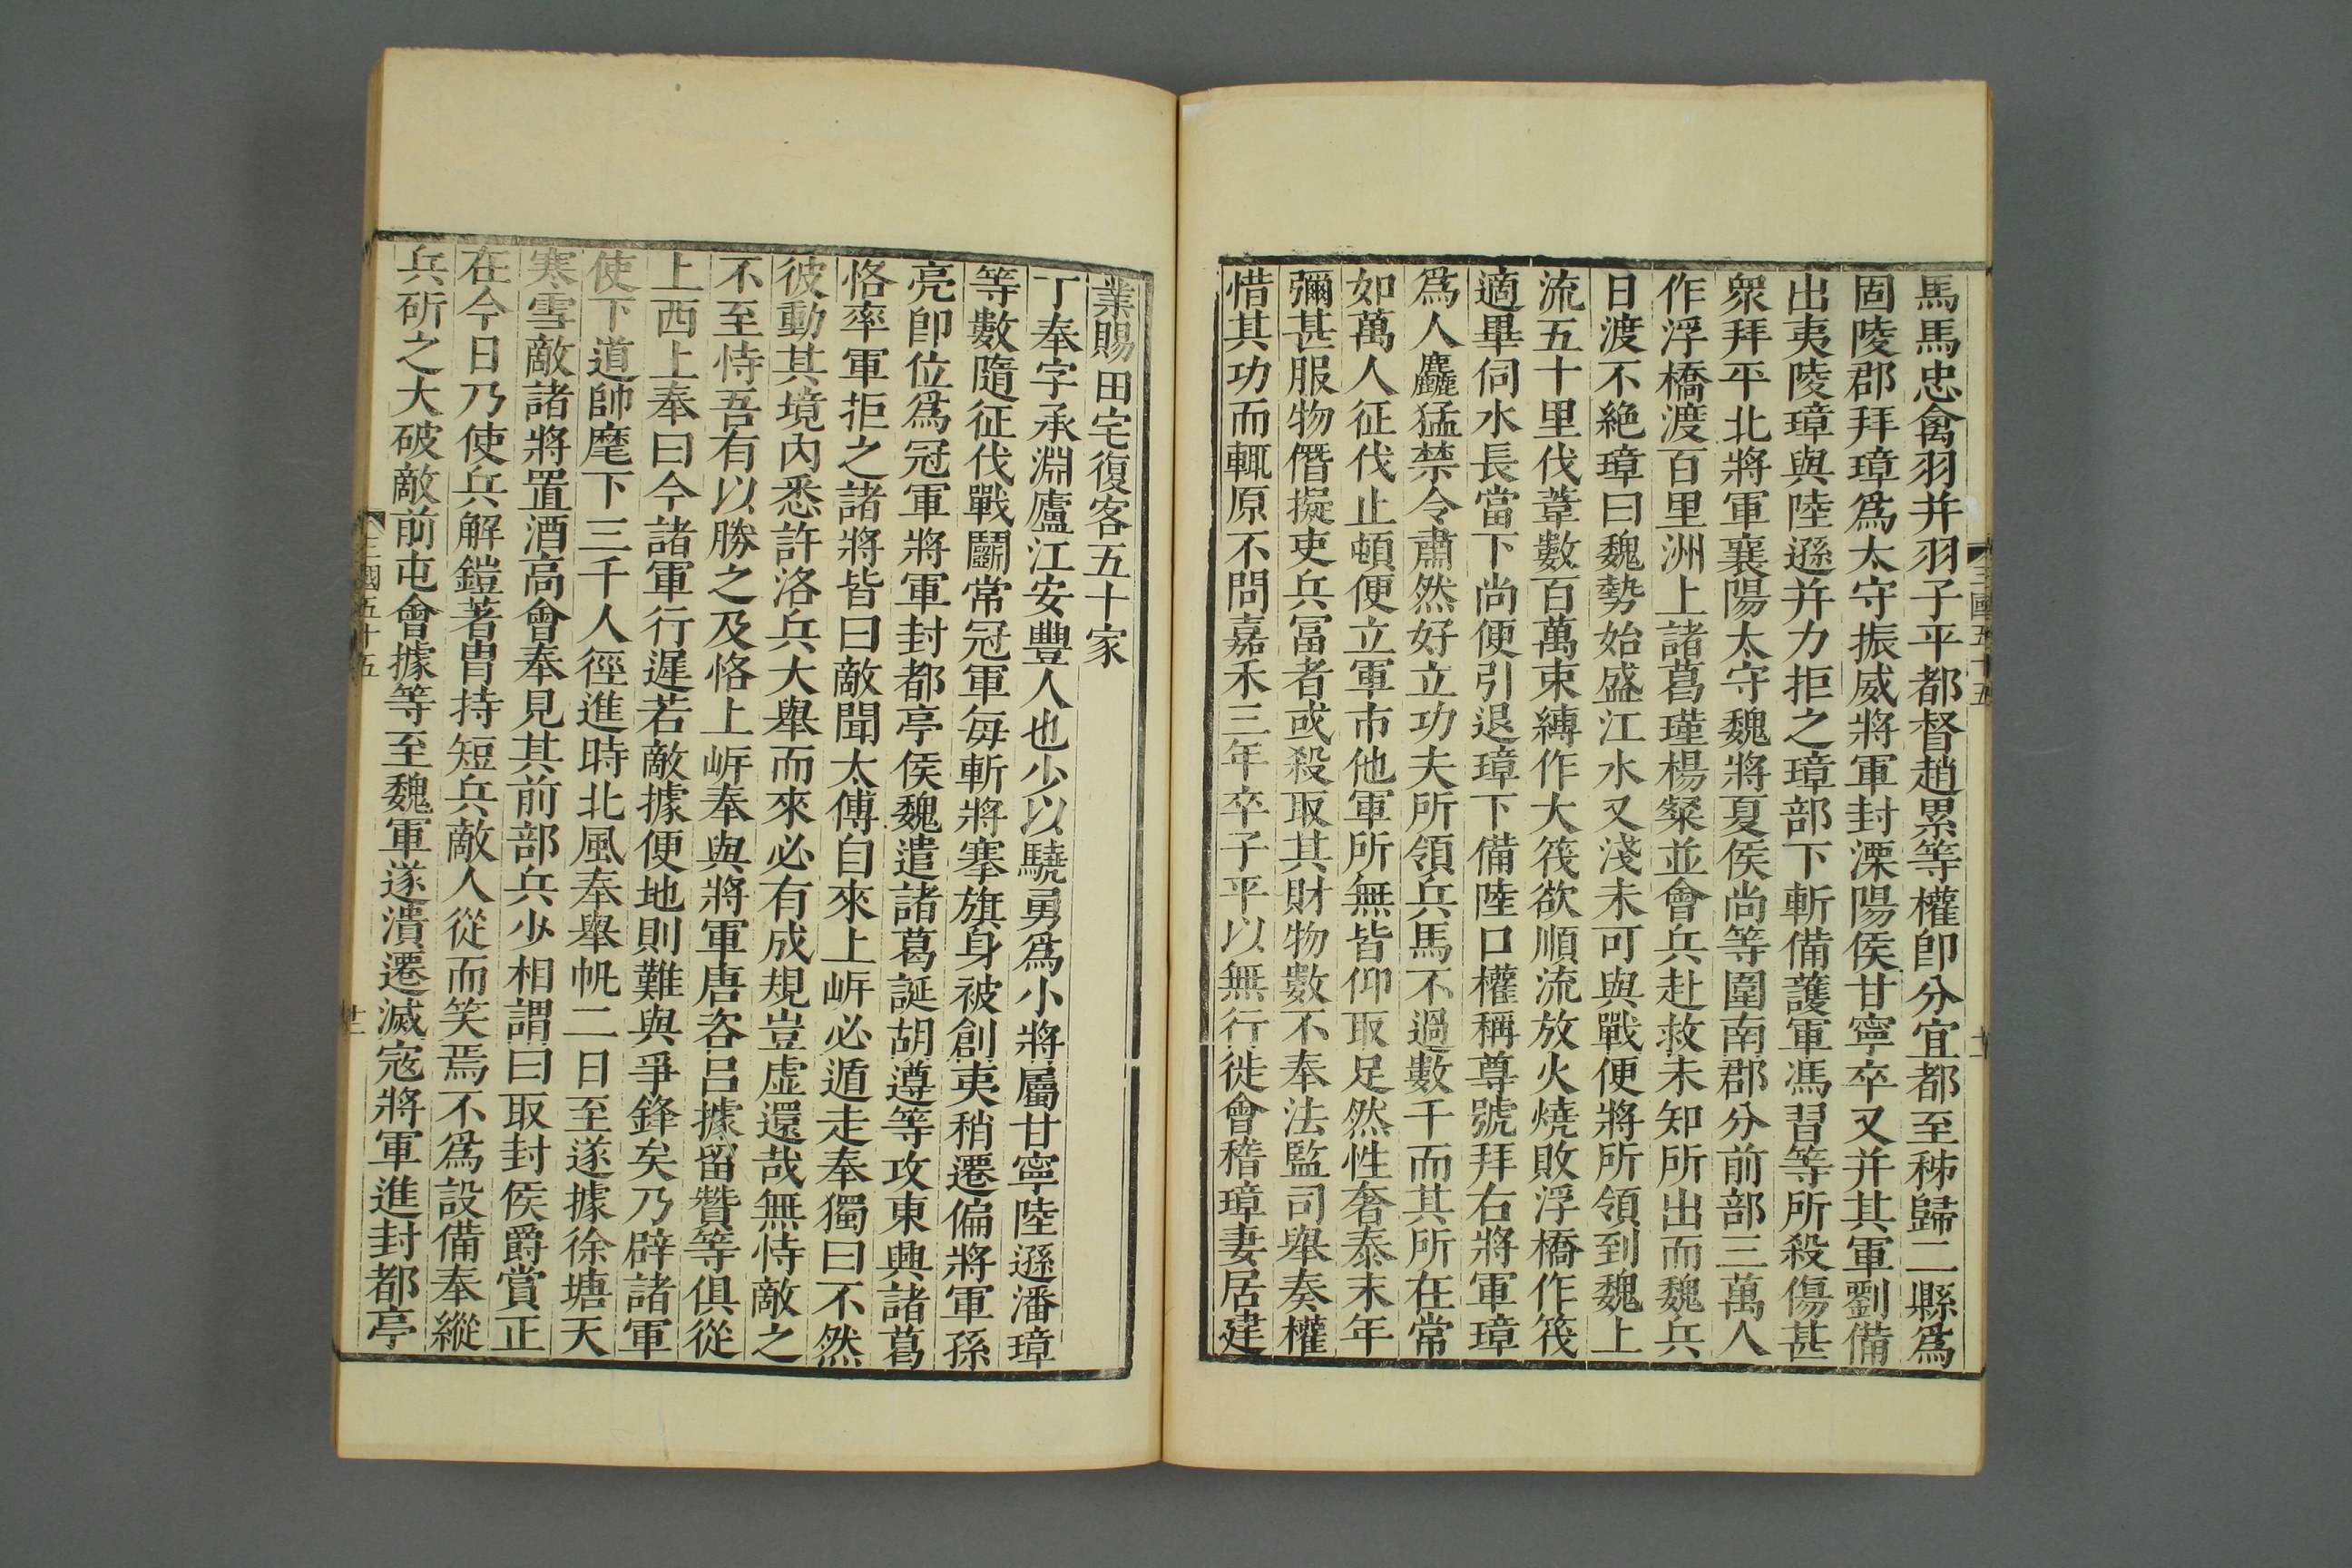 馬馬忠禽羽并羽子平都督趙累等權卽分宜都至秭歸二縣爲
固陵郡拜璋爲太守振威將軍封溧陽侯甘寧卒又并其軍劉備
出夷陵璋與陸遜并力拒之璋部下斬備護軍馮習等所殺傷甚
衆拜平北將軍襄陽太守魏將夏侯尚等圍南郡分前部三萬人
作浮橋渡百里洲上諸葛瑾楊粲並會兵赴救未知所出而魏兵
日渡不絶璋曰魏勢始盛江水又淺未可與戰便將所領到魏上
流五十里伐葦數百萬束縛作大筏欲順流放火燒敗浮橋作筏
適畢伺水長當下尚便引退璋下備陸口權稱尊號拜右將軍璋
爲人麤猛禁令肅然好立功夫所領兵馬不過數千而其所在常
如萬人征伐止頓便立軍市他軍所無皆仰取足然性奢泰末年
彌甚服物僭擬吏兵冨者或殺取其財物數不奉法監司舉奏權
惜其功而輒原不問嘉禾三年卒子平以無行徙會稽璋妻居建
三國五十五
業賜田宅復客五十家
丁奉字承淵廬江安豐人也少以驍勇爲小將屬甘寧陸遜潘璋
等數隨征伐戰鬭常冠軍每斬將搴旗身被創夷稍遷偏將軍孫
亮卽位爲冠軍將軍封都亭侯魏遣諸葛誕胡遵等攻東興諸葛
恪率軍拒之諸將皆曰敵聞太傅自來上岸必遁走奉獨曰不然
彼動其境内悉許洛兵大舉而來必有成規豈虛還哉無恃敵之
不至恃吾有以勝之及恪上岸奉與將軍唐咨呂據留贊等俱從
上西上奉曰今諸軍行遲若敵據便地則難與爭鋒矣乃辟諸軍
使下道帥麾下三千人徑進時北風奉舉帆二日至遂據徐塘天
寒雪敵諸將置酒高會奉見其前部兵少相謂曰取封侯爵賞正
在今日乃使兵解鎧著冑持短兵敵人從而笑焉不爲設備奉縱
兵斫之大破敵前屯會據等至魏軍遂潰遷滅寇將軍進封都亭
三國五十五